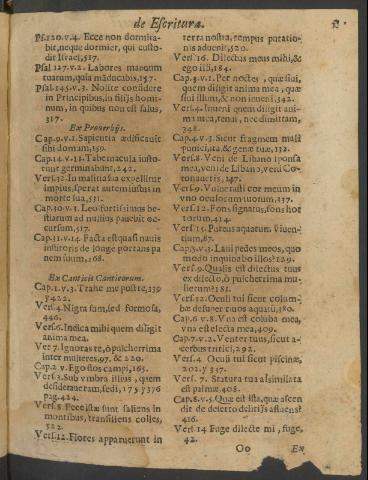 de Escritura.
Ps.120.v.4. Ecce non dormita-
bit, neque dormiet, qui custo-
dit Israel, 517.
Psal. 127.v.2. Labores manuum
tuarum, quia māducabis, 157.
Psal. 145.v.3. Nolite confidere
in Principibus, in filijs homi-
num, in quibus non est salus,
317.
Ex Proverbijs.
Cap. 9.v.1. Sapientia ædificavit
sibi domum, 159.
Cap. 14.v.11. Tabernacula iusto-
runt germinabunt, 242.
Vers. 32. In malitia sua expellitur
impius, sperat autem iustus in
morte sua, 531.
Cap. 30.v.3. Leo fortissimus be-
stiarum ad nullius pavebit oc-
cursum, 517.
Cap. 31.v.14. Facta est quasi navis
institoris de longe portans pa-
nem suum, 168.
Ex Canticis Canticorum.
Cap. 1.v.3. Trahe me post te, 139
y 422.
Vers. 4. Nigra sum, sed formosa,
446.
Vers. 6. Indica mihi quem diligit
anima mea.
Ver. 7. Ignoras te, ò pulcherrima
inter mulieres, 97. & 220.
Cap. 2.v. Ego flos campi, 165.
Vers. 3. Sub vmbra illius, quem
desideraueram, sedi, 175 y 376
pag. 424.
Vers. 8 Ecce iste sunt saliens in
montibus, transiliens colles,
522.
Vers. 12. Flores apparuerunt in
terra nostra, tempus putatio-
nis advenit, 520.
Vers. 16. Dilectus meus mihi, &
ego illi, 184.
Cap. 4.v.1. Per noctes, quæsiui,
quem diligit anima mea, quæ
siui illum, & non inveni, 542.
Vers. 4. Inveni quem diligit ani-
ma mea, tenui, nec dimittam,
348.
Cap. 4.v.3. Sicut fragmem mali
punici, ita, & genæ tuæ, 132.
Vers. 8. Veni de Libano sponsa
mea, veni de Libano, veni Co-
ronaveris, 147.
Vers. 9. Vulnerasti cor meum in
vno oculorum tuorum, 357.
Vers. 12. Fons signatus, fons hor
torum, 414.
Vers. 15. Puteus aquarum viuen-
tium, 87.
Cap. 5.v.3. Laui pedes meos, quo
modo inquinabo illos? 129.
Vers. 9. Qualis est dilectus tuus
ex dilecto, ò pulcherrima mu-
lierum? 181.
Vers. 12. Oculi tui sicut colum-
bæ desuper riuos aquarū, 180.
Cap. 6.v.8. Vna est coluba mea,
vna est electa mea, 409.
Cap. 7.v.2. Venter tuus, sicut a-
cerbus tritici, 292.
Vers. 4 Oculi tui sicut piscinæ,
202. y 317.
Vers. 7. Statura tua assimilata
est palmæ 408.
Cap. 8.v.5. Quæ est ista, quæ ascen
dit de deserto delitijs afluens?
416.
Vers. 14 Fuge dilecte mi, fuge,
42.
Oo Ex